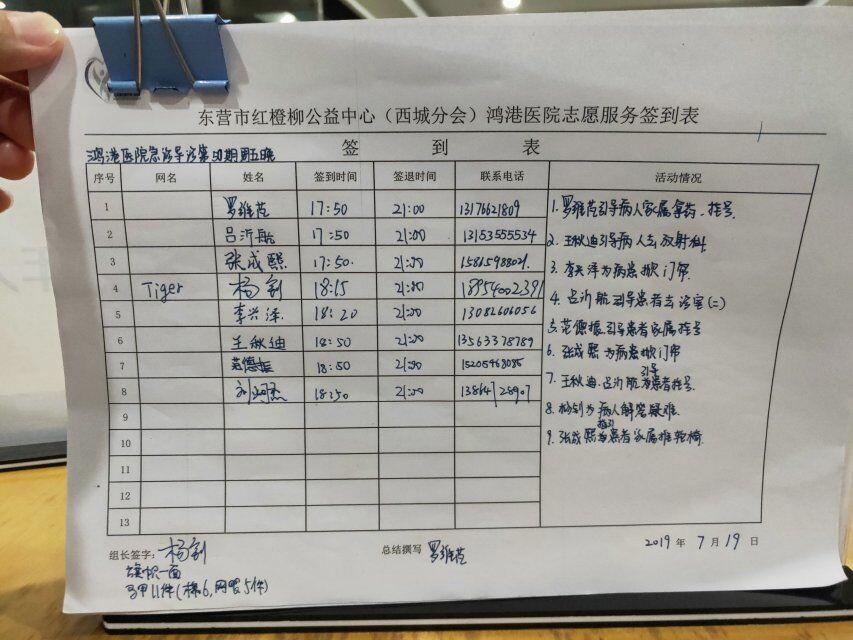 东营市红橙柳公益中心（西城分会）鸿港医院志愿服务签到表
签到表
鸿港医院急诊导诊第50期周五晚
序号 网名 姓名 签到时间 签退时间 联系电话 活动情况
1 罗维茝 17:50 21:00 13176621809
2 吕沂航 17:50 21:00 13153555534
3 张成熙 17:50. 21:00
4 Tiger 杨剑 18:15 21:00 18954002391
5 李兴泽 18:20 21:00 13081606056
6 王秋迪 18:50 21:00 13563378789
7 范德振 18:50 21:00 15205468085
8 18:50 21:00
9
10
11
12
13
1. 引导病人家属拿药、挂号.
2. 王秋迪引导病人去放射科
3. 李兴泽为病患掀门帘
4. 吕沂航引导患者去诊室(二)
5. 范德振引导患者家属挂号
6. 张成熙为病患掀门帘
7. 王秋迪、吕沂航引导患者挂号.
8. 杨剑为病人解答疑难.
9. 张成熙为患者家属推轮椅.
组长签字：杨剑
总结撰写
2019年7月19日
旗帜一面
马甲11件(棉6,网眼5件)